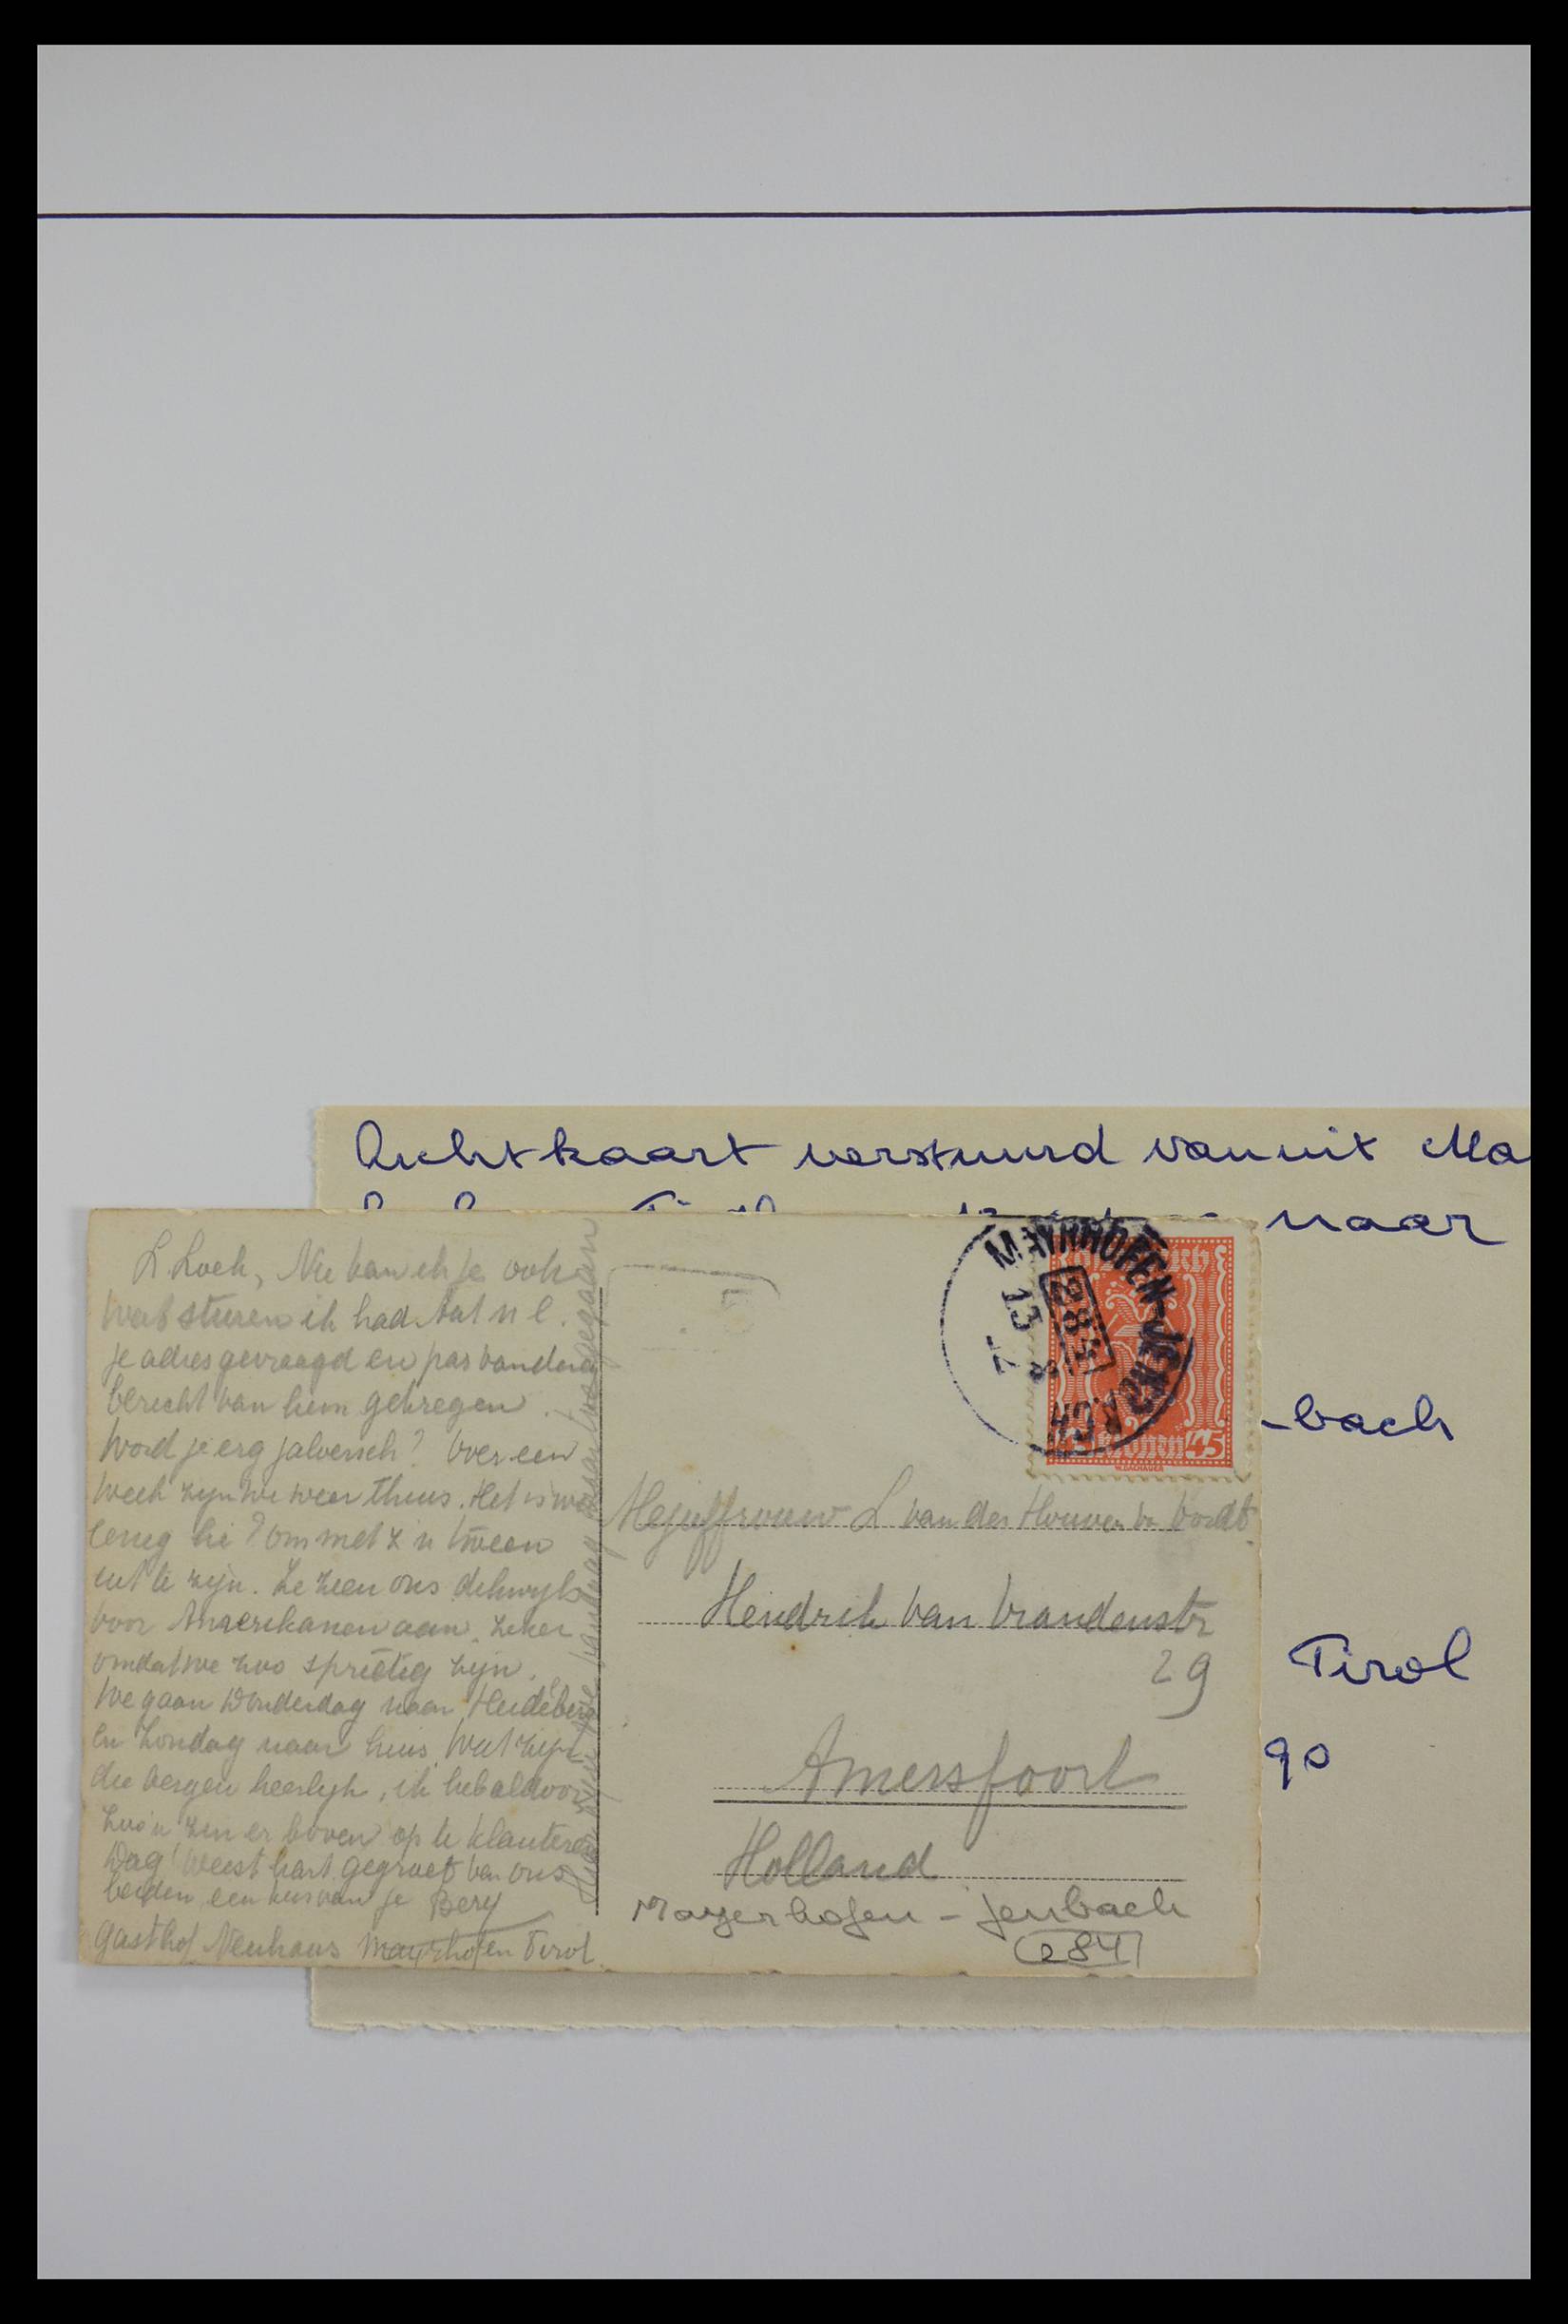 Lichtkaart verstuurd vanuit Ma
naar
-bach
Tirol
90
L. Loek, Nu kan ik je ook
wat sturen ik had Aat n l.
je adres gevraagd en pas vandaag
bericht van hem gekregen.
Word je erg jaloersch? Over een
week zijn we weer thuis. Het is wel
leuig hé? om met z'n tweeen
uit te zijn. Ze zien ons dikwijls
voor Amerikanen aan. Zeker
omdat we zoo sprietig zijn.
We gaan Donderdag naar Heidelberg
en Zondag naar huis. Wat zijn
die bergen heerlijk, ik heb al door
zoo'n zin er boven op te klauteren
Dag! Weest hart. gegroet van ons
beiden, een kus van je Bery
Gasthof Neuhaus Mayrhofen Tirol.
vandaag naar toe gegaan
MAYRHOFEN-JENBACH
284
13
Kronen 45
Mejuffrouw L van der Houven v. Oordt
Hendrik van Viandenstr
29
Amersfoort
Holland
Mayerhofen - Jenbach
284